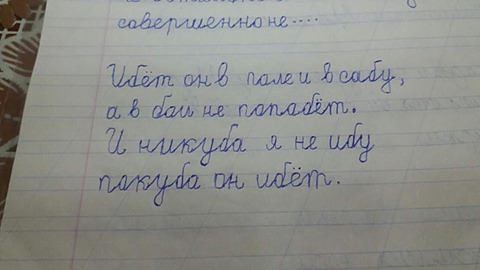 совершенно не....
Ибёт он в поле и в сабу,
а в бом не попабёт.
И никуба я не ибу
покуба он ибёт.